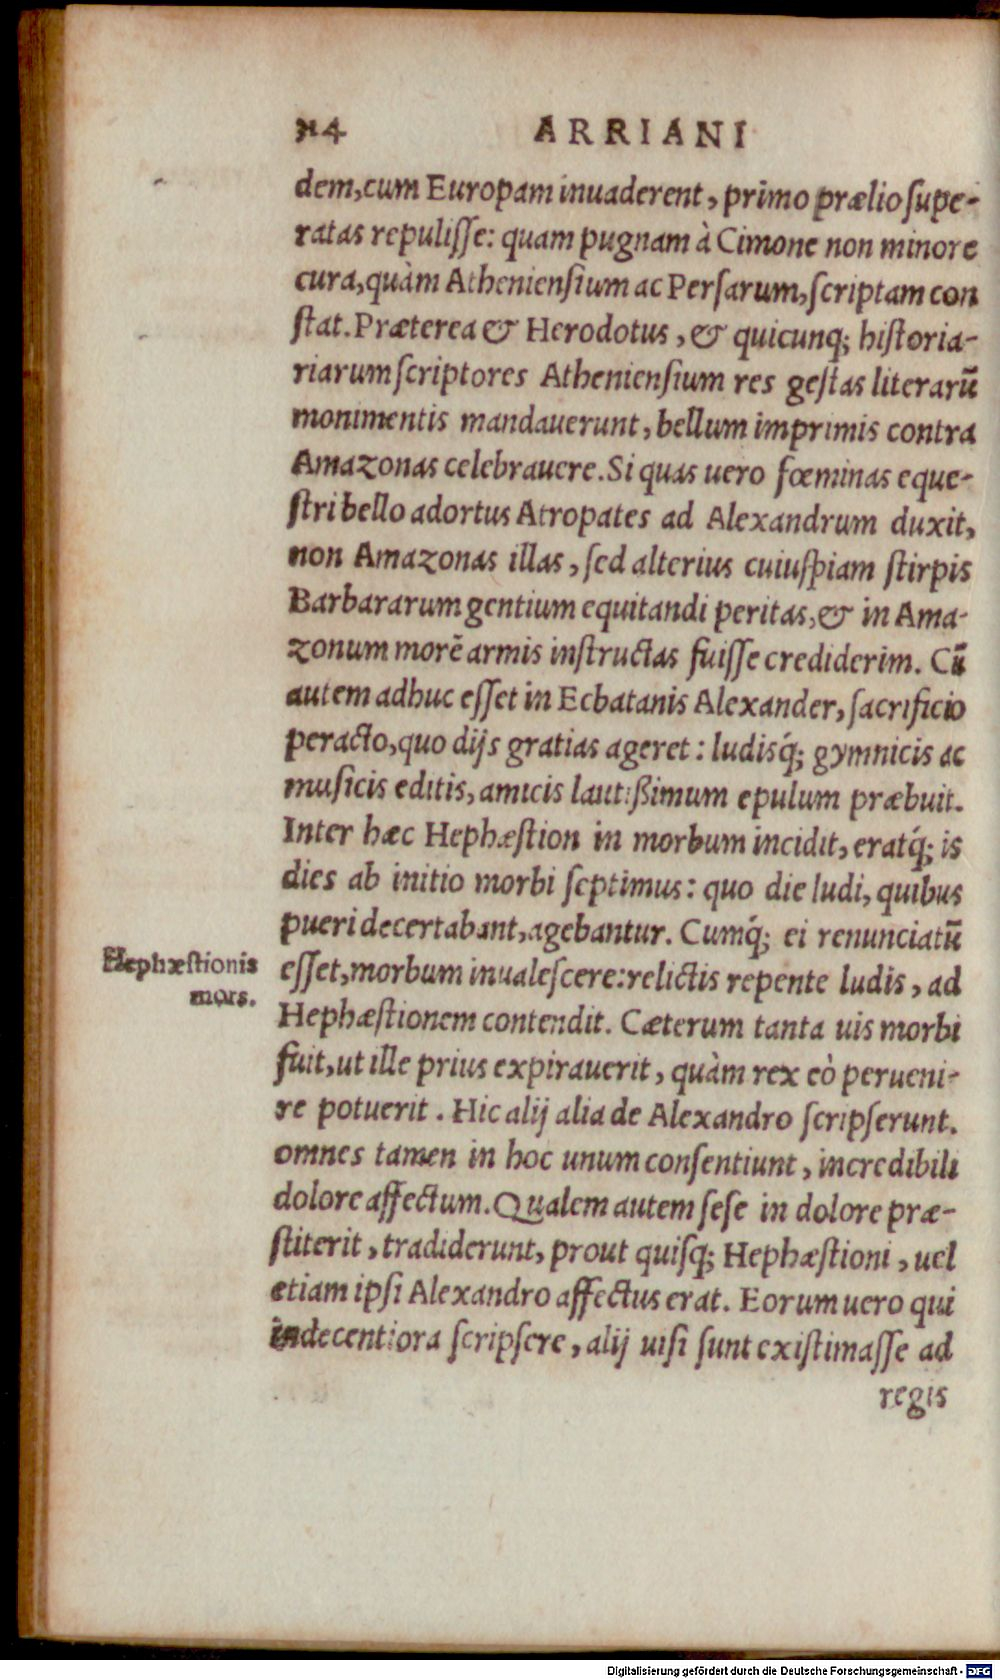 314 ARRIANI
dem, cum Europam inuaderent, primo prælio supe-
ratas repulisse: quam pugnam à Cimone non minore
cura, quàm Atheniensium ac Persarum, scriptam con
stat. Præterea & Herodotus, & quicunq; historia-
riarum scriptores Atheniensium res gestas literarũ
monimentis mandauerunt, bellum imprimis contra
Amazonas celebrauere. Si quas uero fœminas eque-
stri bello adortus Atropates ad Alexandrum duxit,
non Amazonas illas, sed alterius cuiuspiam stirpis
Barbararum gentium equitandi peritas, & in Ama-
zonum morẽ armis instructas fuisse crediderim. Cũ
autem adhuc esset in Ecbatanis Alexander, sacrificio
peracto, quo dijs gratias ageret: ludisq́; gymnicis ac
musicis editis, amicis lautißimum epulum præbuit.
Inter hæc Hephæstion in morbum incidit, eratq́; is
dies ab initio morbi septimus: quo die ludi, quibus
pueri decertabant, agebantur. Cumq́; ei renunciatũ
esset, morbum inualescere: relictis repente ludis, ad
Hephæstionem contendit. Cæterum tanta uis morbi
fuit, ut ille prius expirauerit, quàm rex eò perueni-
re potuerit. Hic alij alia de Alexandro scripserunt.
omnes tamen in hoc unum consentiunt, incredibili
dolore affectum. Qualem autem sese in dolore præ-
stiterit, tradiderunt, prout quisq; Hephæstioni, uel
etiam ipsi Alexandro affectus erat. Eorum uero qui
indecentiora scripsere, alij uisi sunt existimasse ad
regis
Hephæstionis
mors.
Digitalisierung gefördert durch die Deutsche Forschungsgemeinschaft - DFG